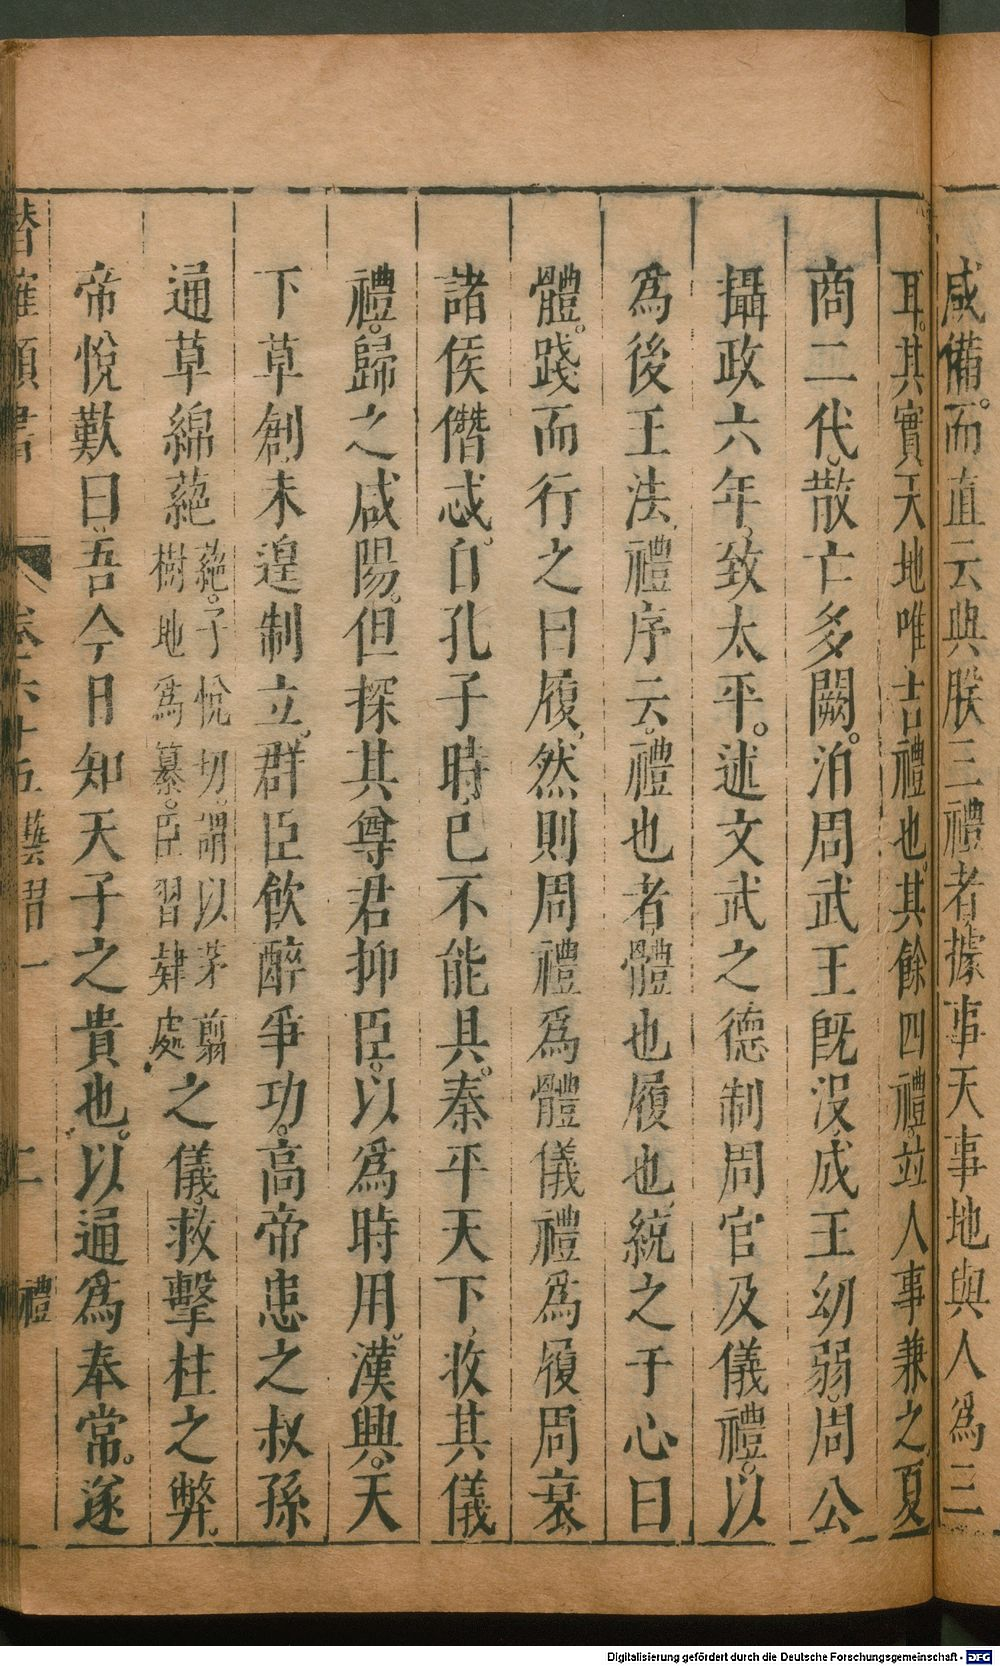 咸備。而直云典朕三禮者。據事天事地與人爲三
耳。其實天地唯吉禮也。其餘四禮並人事兼之。夏
商二代。散亡多闕。洎周武王旣沒。成王幼弱。周公
攝政六年。致太平。述文武之德。制周官及儀禮。以
爲後王法。禮序云。禮也者。體也。履也。統之于心曰
體。踐而行之曰履。然則周禮爲體。儀禮爲履。周衰。
諸侯僭忒。自孔子時。已不能具。秦平天下。收其儀
禮。歸之咸陽。但採其尊君抑臣。以爲時用。漢興。天
下草創。未遑制立。群臣飲醉爭功。高帝患之。叔孫
通草綿蕝
蕝。子悅切。謂以茅翦
樹地爲纂。臣習肄處。
之儀。救擊柱之弊。
帝悅歎曰。吾今日知天子之貴也。以通爲奉常。遂
潛確類書 卷六十五 藝習一 二 禮
Digitalisierung gefördert durch die Deutsche Forschungsgemeinschaft - DFG